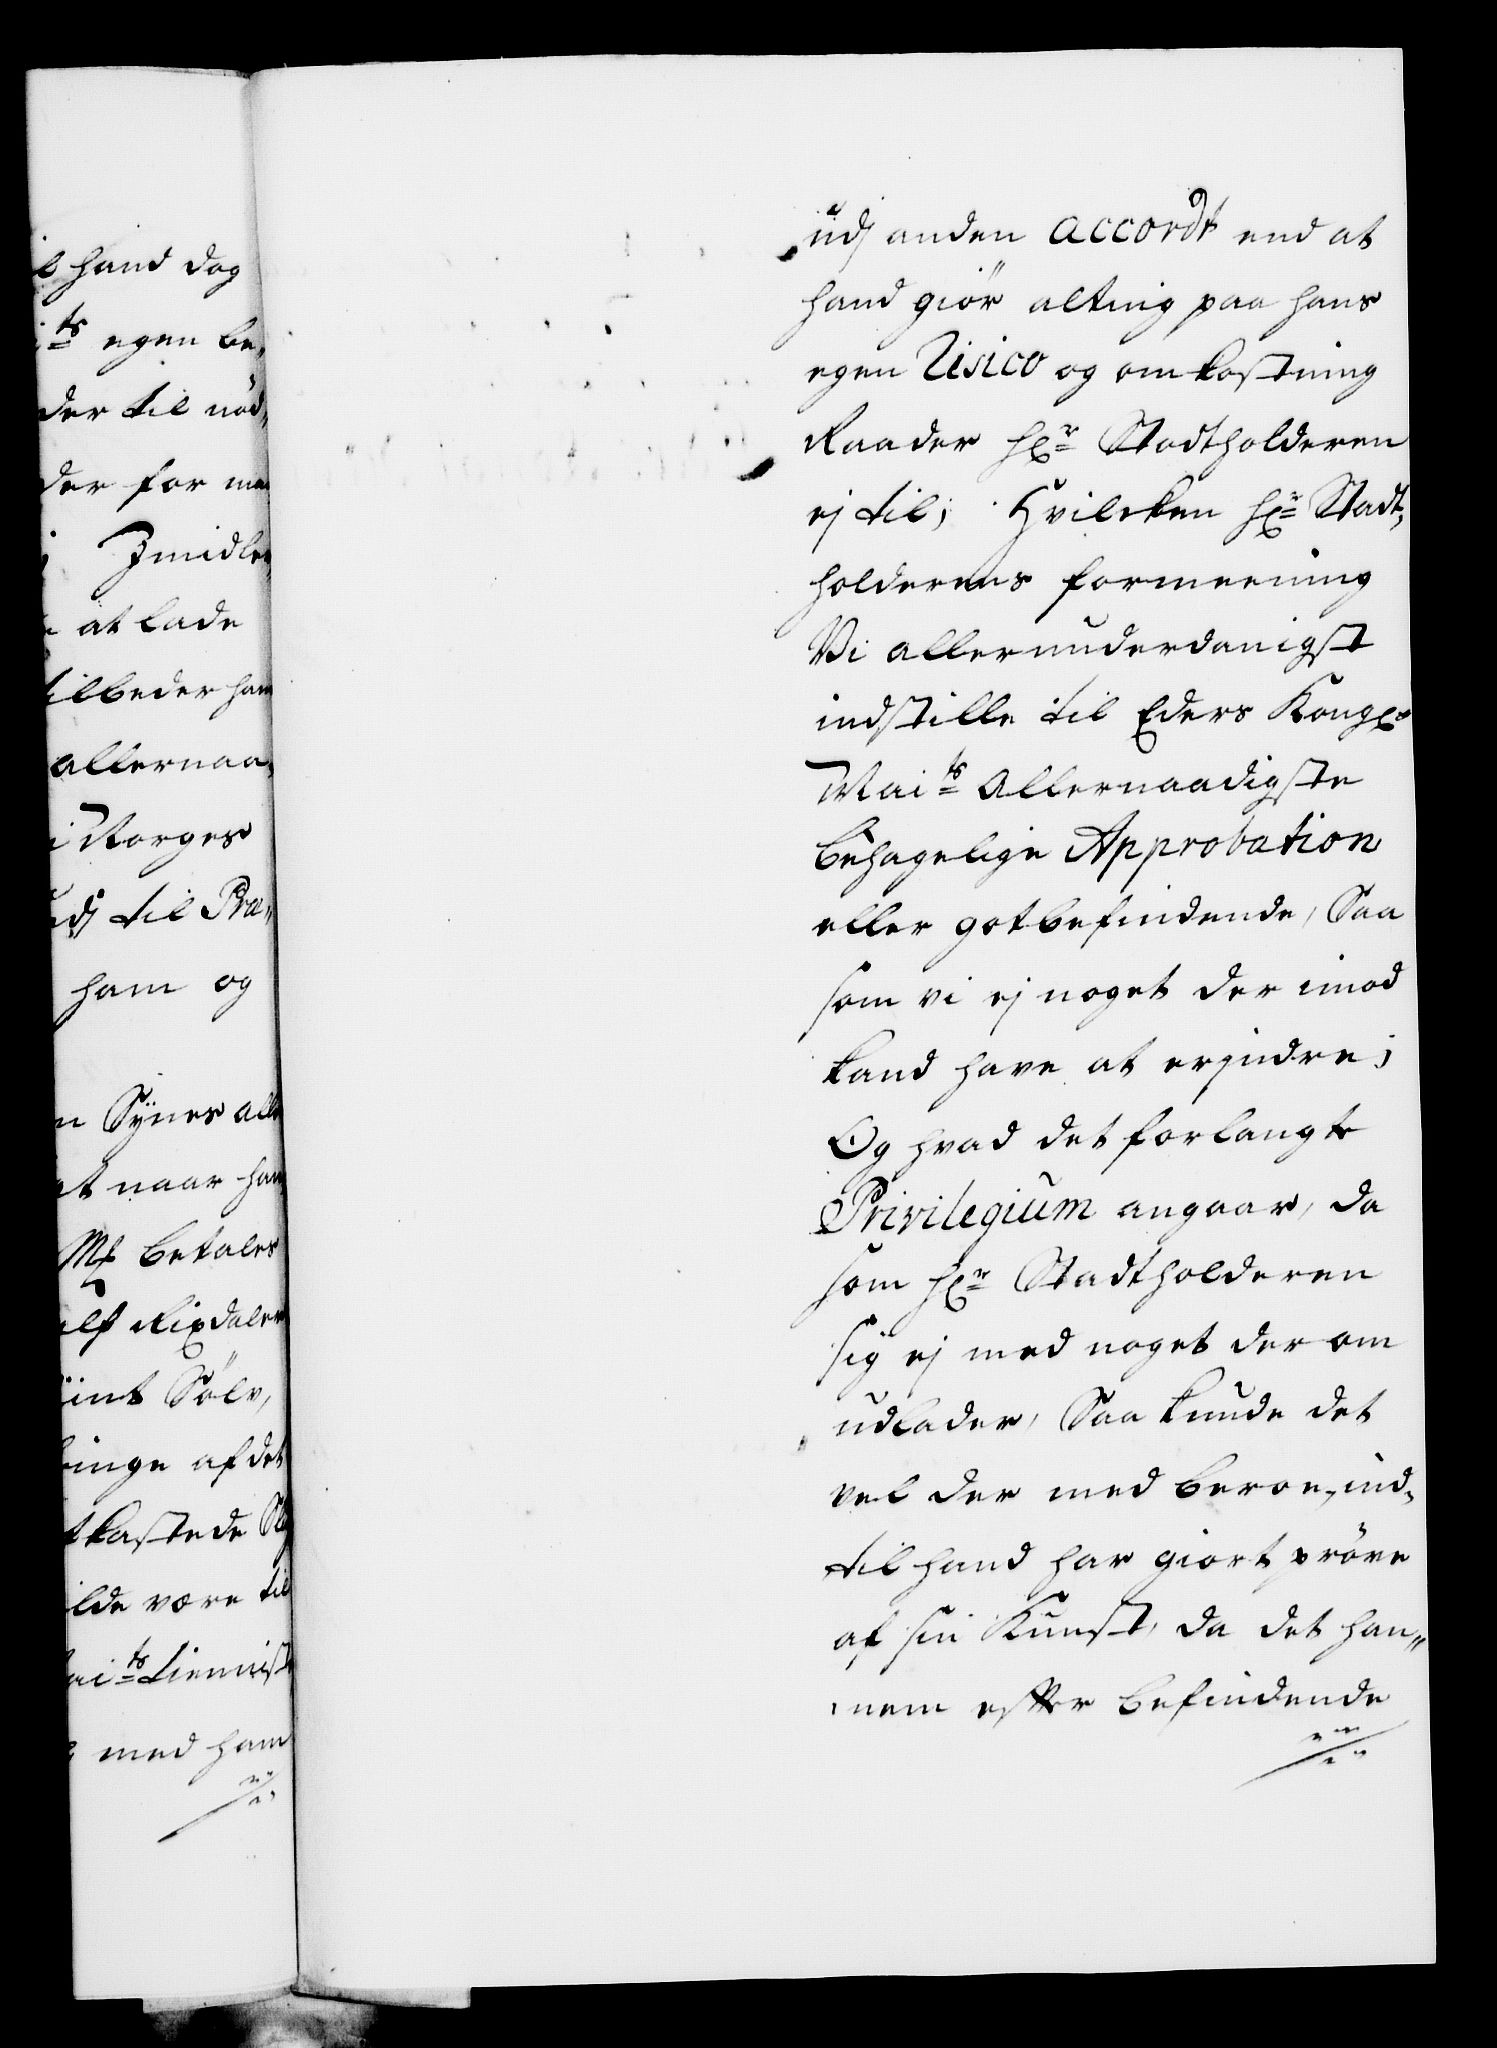 l hand dog
ts egen be,
der til nöd,,
der for
Imidler
at lade
tilbeder ham
allernaa,
i Norges
udj til Præ,,
ham og
n Sÿnes alle
at naar han
Mk betales
alf Rixdaler
fiint Sölv,
ringe af det
tkastede
ilde være til
aits tienniste
med ham
udj anden accordt end at
hand giör alting paa hans
egen Risico og omkostning
Raader hr Stadtholderen
ej til; Hvilcken hr Stadt,
holderens formeening
Vi allerunderdanigst
indstille til Eders Kongl
Maits Allernaadigste
behagelige Approbation
eller gotbefindende, Saa
som vi ej noget der imod
kand have at erjndre;
Og hvad det forlangte
Privilegium angaar, da
som hr Stadtholderen
sig ej med noget der om
udlader, Saa kunde det
vel der med beroe, ind,
til hand har giort pröve
af sin Kunst, da det han,,
nem effter befindende